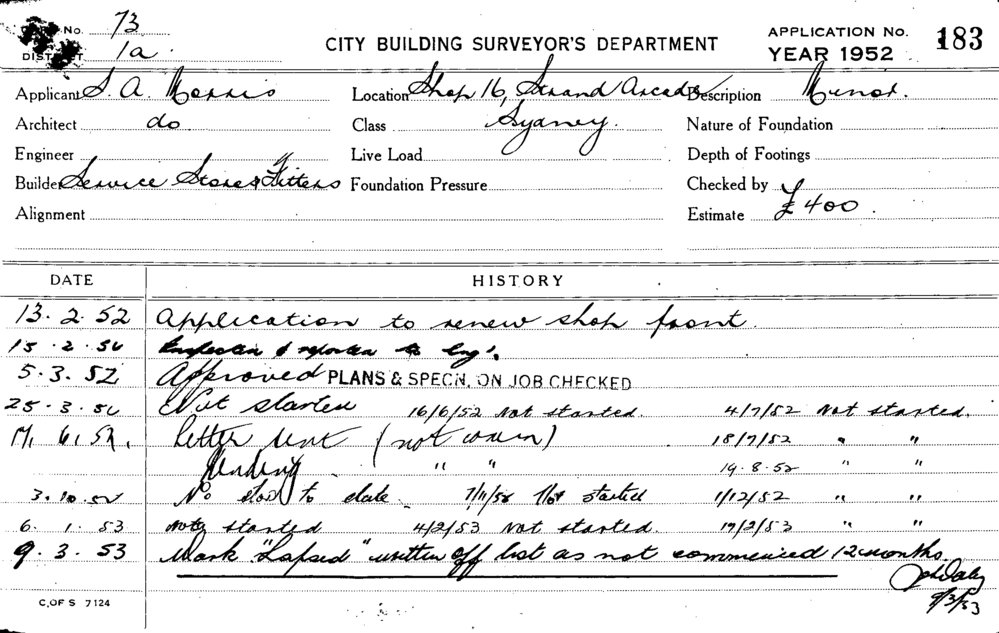 No. 73
DISTRICT 1a.
CITY BUILDING SURVEYOR'S DEPARTMENT
APPLICATION No. 183
YEAR 1952
Applicant S. A. Morris Location Shop 16, Strand Arcade Description Minor.
Architect do Class Sydney. Nature of Foundation
Engineer Live Load Depth of Footings
Builder Service Stores Fitters Foundation Pressure Checked by
Alignment Estimate £400.
DATE HISTORY
13. 2. 52 Application to renew shop front.
15. 2. 52 Inspected & reported to Eng'.
5. 3. 52 Approved PLANS & SPECN. ON JOB CHECKED
25. 3. 52 Not started 16/6/52 Not started. 4/7/52 Not started.
6. 52. Letter sent (not 18/7/52 " "
Pending " " 19. 8. 52 " "
3. 10. 52 No start to date. 7/11/52 Not started 1/12/52 " "
6. 1. 53 Not started 4/2/53 Not started. 17/2/53 " "
9. 3. 53 Mark "Lapsed" written off list as not commenced 12 months.
9/3/53
C. OF S 7124